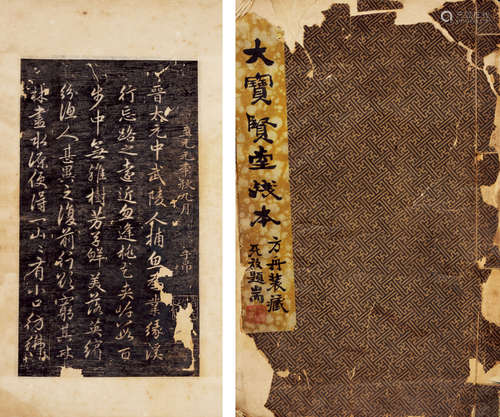 至元元年秋九月 子昂
晉太元中武陵人捕魚為業緣溪
行忘路之遠近忽逢桃花夾岸數百
步中無雜樹芳草鮮美落英繽
紛漁人甚異之復前行欲窮其林
林盡水源便得一山〻有小口彷彿
大寶賢堂残本
方舟裝藏
題耑